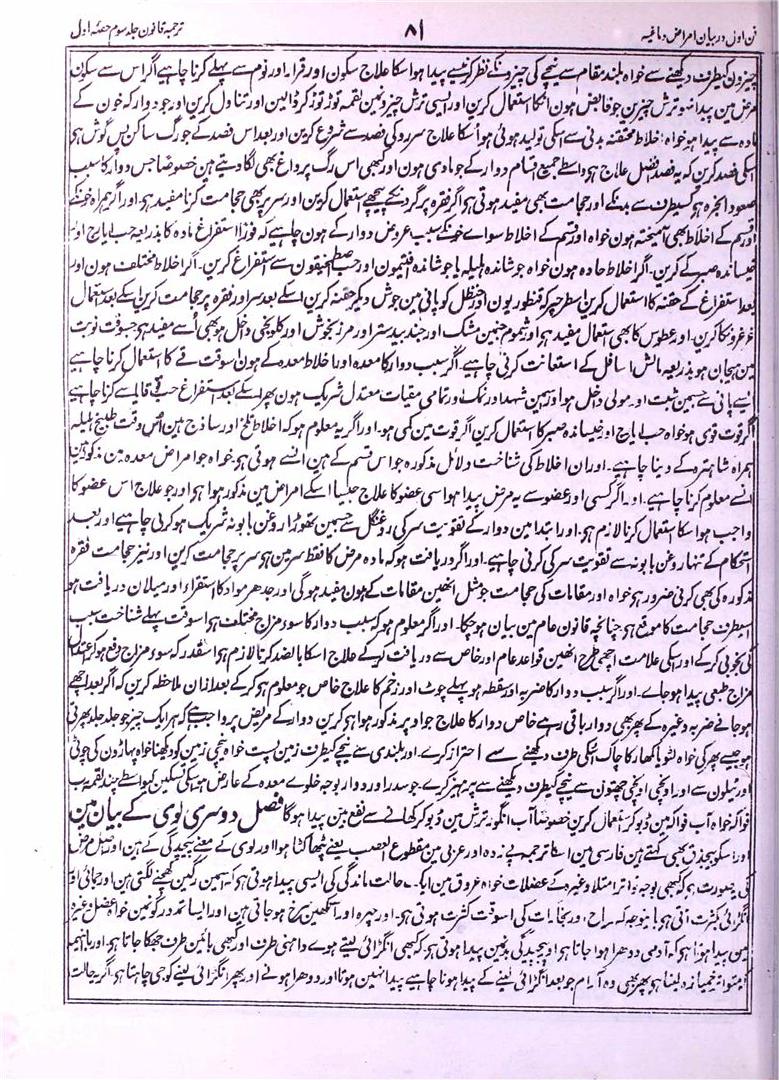 فن اول در بیان امراض دماغیہ ۸۱ ترجمہ قانون جلد سوم حصہ اول
چیزون کیطرف دیکھنے سے خواہ بلند مقام سے نیچے کی چیزونکے نظر کرنیسے پیدا ہو اسکا علاج سکون اور قرار اور نوم سے پہلے کرنا چاہیے اگر اس سے سکون
مرض مین پیدا نہو ترش چیزین جو قابض ہون انکا استعمال کرین اور ایسی ترش چیزونمین لقمہ توڑ توڑ کر ڈالین اور تناول کرین اور جو دوار کہ خون کے
مادہ سے پیدا ہو خواہ اخلاط محتقنہ بدنی سے اسکی تولید ہوئی ہو اسکا علاج سررو کی فصد سے شروع کرین اور بعد اس فصد کے جو رگ ساکن پس گوش ہی
اسکی فصد کرین کہ یہ فصد افضل علاج ہو واسطے جمیع اقسام دوار کے جو مادی ہون اور کبھی اس رگ پر داغ بھی لگا دیتے ہین خصوصا جس دوار کا سبب
صعود ابخرہ ہو کسیطرف سے بدنکے اور حجامت بھی مفید ہوتی ہو اگر نقرہ پر گردنکے پیچھے استعمال کرین اور سر پر بھی حجامت کرنا مفید ہو اور اگر ہمراہ خونکے
اور قسم کے اخلاط بھی آمیختہ ہون خواہ اور قسم کے اخلاط سواے خونکے سبب عروض دوار کے ہون چاہیے کہ فورًا استفراغ مادہ کا بذریعہ حب ایارج اور
خیساندہ صبر کے کرین۔ اگر اخلاط حادہ ہون خواہ جوشاندہ ہلیلہ یا جوشاندہ افتیمون اور حب اصطمخیقون سے استفراغ کرین۔ اگر اخلاط مختلف ہون اور
بعد استفراغ کے حقنہ کا استعمال کرین اسطرحپر کہ قنطوریون اور حنظل کو پانی مین جوش دیکر حقنہ کرین اسکے بعد سر اور نقرہ پر حجامت کرین اسکے بعد استعمال
غرغرونکا کرین۔ اور عطوس کا بھی استعمال مفید ہو اور شموم جنمین مشک اور جند بیدستر اور مرزنجوش اور کلونجی داخل ہو بھی اُسے مفید ہو جسوقت نوبت
مین ہیجان ہو بذریعہ مالش اسافل کے استعانت کرنی چاہیے۔ اگر سبب دوار کا معدہ اور اخلاط معدہ کے ہون اوسوقت قے کا استعمال کرنا چاہیے
ایسے پانی سے جسمین شبت اور مولی داخل ہو اور جسمین شہد اور نمک اور تمامی مقیات معتدل شریک ہون پھر اسکے بعد استفراغ حب قوقایا سے کرنا چاہیے
اگر قوت قوی ہو خواہ حب ایارج اور خیساندہ صبر کا استعمال کرین اگر قوت مین کمی ہو۔ اور اگر یہ معلوم ہو کہ اخلاط تلخ اور ساذج ہین اُس وقت طبیخ ہلیلہ
ہمراہ شاہترہ کے دینا چاہیے۔ اور ان اخلاط کی شناخت دلائل مذکورہ جو اس قسم کے ہین اُنسے ہوتی ہو۔ خواہ جو امراض معدہ مین مذکور ہین
انسے معلوم کرنا چاہیے۔ اور اگر کسی اور عضو سے یہ مرض پیدا ہو اسی عضو کا علاج جیسا اسکے امراض مین مذکور ہوا ہو اور جو علاج اس عضو کا
واجب ہو اسکا استعمال کرنا لازم ہو۔ اور ابتدا مین دوار کے تقویت سر کی روغن گل سے جسمین تھوڑا روغن بابونہ شریک ہو کرنی چاہیے اور بعد
استحکام کے تنہا روغن بابونہ سے تقویت سر کی کرنی چاہیے۔ اور اگر دریافت ہو کہ مادہ مرض کا فقط سر مین ہو سر پر حجامت کرین اور نیز حجامت نقرہ
مذکورہ کی بھی کرنی ضرور ہو خواہ اور مقامات کی حجامت جو مثل انھین مقامات کے ہون مفید ہوگی اور جدھر مواد کا استقراء اور میلان دریافت ہو
اسیطرف حجامت کا موقع ہو چنانچہ قانون عام مین بیان ہو چکا۔ اور اگر معلوم ہو کہ سبب دوار کا سوء مزاج مختلف ہو اسوقت پہلے شناخت سبب
کی بخوبی کرکے اور اسکی علامت اچھی طرح انھین قواعد عام اور خاص سے دریافت کرکے علاج اسکا بالضد کرنا لازم ہو اسقدر کہ سوء مزاج دفع ہوکر اعتدال
مزاج طبعی پیدا ہو جاے۔ اور اگر سبب دوار کا ضربہ اور سقطہ ہو پہلے چوٹ اور زخم کا علاج خاص جو معلوم ہو کرکے بعد ازان ملاحظہ کرین کہ اگر بعد اچھے
ہو جانے ضربہ وغیرہ کے پھر بھی دوار باقی رہے خاص دوار کا علاج جو اوپر مذکور ہوا ہو کرین دوار کے مریض پر واجب ہے کہ ہر ایک چیز جو جلد جلد پھرتی
ہو جیسے پھرکی خواہ لٹو یا کمھار کا چاک انکی طرف دیکھنے سے احتراز کرے۔ اور بلندی سے نیچے کیطرف زمین پست خواہ نیچی زمین کو دیکھنا خواہ پہاڑون کی چوٹی
اور ٹیلون سے اور اونچی اونچی چھتون سے نیچے کیطرف دیکھنے سے پرہیز کرے۔ جو سدر اور دوار بوجہ خلوے معدہ کے عارض ہو اسکی تسکین کیواسطے چند لقمہ رب
فواکہ خواہ آب فواکہ مین ڈبو کر استعمال کرین خصوصاً آب انگور ترش مین ڈبو کر کھانے سے نفع بین پیدا ہوگا فصل دوسری لوی کے بیان مین
اور اسکو پیچذق بھی کہتے ہین فارسی مین اسکا ترجمہ پے زدہ اور عربی مین مقطوع العصب یعنے پٹھا کٹا ہوا اور لوی کے معنے پیچیدگی کے ہین اور اصل مرض
کی یہ صورت ہو کہ کبھی بوجہ تواتر امتلا وغیرہ کے عضلات خواہ عروق مین ایک حالت ماندگی کی ایسی پیدا ہوتی ہو کہ اسمین رگین کھنچنے لگتی ہین اور جمائی اور
انگڑائی بکثرت آتی ہو با وجودیکہ ریاح اور بخارات کی اسوقت کثرت ہوتی ہو۔ اور چہرہ اور آنکھین سرخ ہو جاتی ہین اور ایسا تمدد رگونمین خواہ عضل وغیرہ
مین پیدا ہوتا ہو کہ آدمی دوھرا ہوا جاتا ہو اور پیچیدگی بدنمین پیدا ہوتی ہو۔ کہ کبھی انگڑائی لیتے ہوے داہنی طرف اور کبھی بائین طرف جھکا جاتا ہو۔ اور باینہمہ
متواتر خمیازہ لیتا ہو پھر بھی وہ آرام جو بعد انگڑائی لینے کے پیدا ہونا چاہیے پیدا نہین ہوتا اور دوھرا ہونے اور پھر انگڑائی لینے کو جی چاہتا ہو۔ اگر یہ حالت